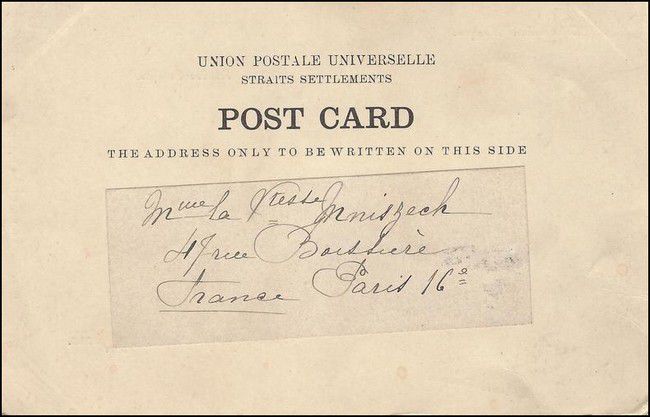 UNION POSTALE UNIVERSELLE
STRAITS SETTLEMENTS
POST CARD
THE ADDRESS ONLY TO BE WRITTEN ON THIS SIDE
Mme la Mniszech
rue Boissière
France Paris 16e